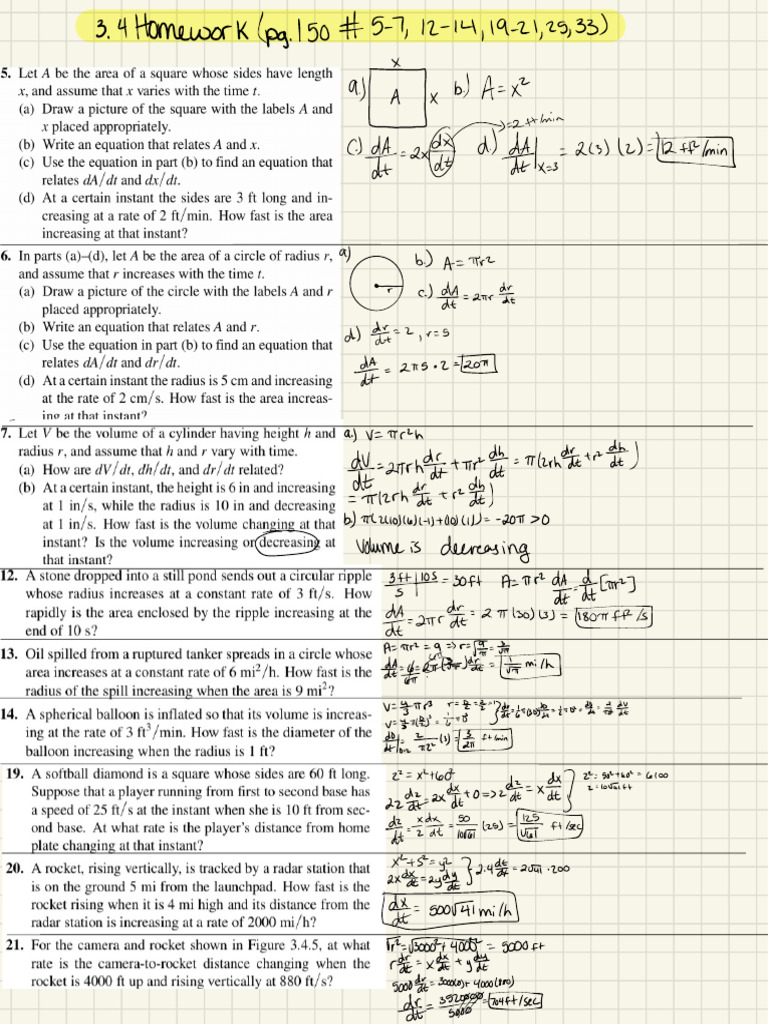 3.4 Homework (pg.150 # 5-7, 12-14, 19-21, 25, 33)
5. Let A be the area of a square whose sides have length
x, and assume that x varies with the time t.
(a) Draw a picture of the square with the labels A and
x placed appropriately.
(b) Write an equation that relates A and x.
(c) Use the equation in part (b) to find an equation that
relates dA/dt and dx/dt.
(d) At a certain instant the sides are 3 ft long and in-
creasing at a rate of 2 ft/min. How fast is the area
increasing at that instant?
a.) x A x
b.) A = x²
c.) dA/dt = 2x dx/dt → = 2 ft/min
d.) dA/dt | x=3 = 2(3)(2) = 12 ft²/min
6. In parts (a)–(d), let A be the area of a circle of radius r,
and assume that r increases with the time t.
(a) Draw a picture of the circle with the labels A and r
placed appropriately.
(b) Write an equation that relates A and r.
(c) Use the equation in part (b) to find an equation that
relates dA/dt and dr/dt.
(d) At a certain instant the radius is 5 cm and increasing
at the rate of 2 cm/s. How fast is the area increas-
ing at that instant?
a) r
b.) A = πr²
c.) dA/dt = 2πr dr/dt
d) dr/dt = 2, r = 5
dA/dt = 2π5·2 = 20π
7. Let V be the volume of a cylinder having height h and
radius r, and assume that h and r vary with time.
(a) How are dV/dt, dh/dt, and dr/dt related?
(b) At a certain instant, the height is 6 in and increasing
at 1 in/s, while the radius is 10 in and decreasing
at 1 in/s. How fast is the volume changing at that
instant? Is the volume increasing or decreasing at
that instant?
a.) V = πr²h
dV/dt = 2πrh dr/dt + πr² dh/dt = π(2rh dr/dt + r² dh/dt)
= π(2rh dr/dt + r² dh/dt)
= -20π > 0
Volume is decreasing
12. A stone dropped into a still pond sends out a circular ripple
whose radius increases at a constant rate of 3 ft/s. How
rapidly is the area enclosed by the ripple increasing at the
end of 10 s?
3ft/s | 10s = 30ft A = πr² dA/dt = d/dt [πr²]
dA/dt = 2πr dr/dt = 2π(30)(3) = 180π ft²/s
13. Oil spilled from a ruptured tanker spreads in a circle whose
area increases at a constant rate of 6 mi²/h. How fast is the
radius of the spill increasing when the area is 9 mi²?
A = πr² = 9 ⇒ r = √9/π = 3/√π
1/√π mi/h
14. A spherical balloon is inflated so that its volume is increas-
ing at the rate of 3 ft³/min. How fast is the diameter of the
balloon increasing when the radius is 1 ft?
V = 4/3 πr³
(3) = 3/2π ft/min
19. A softball diamond is a square whose sides are 60 ft long.
Suppose that a player running from first to second base has
a speed of 25 ft/s at the instant when she is 10 ft from sec-
ond base. At what rate is the player's distance from home
plate changing at that instant?
z² = x² + 60²
2z dz/dt = 2x dx/dt + 0 ⇒ z dz/dt = x dx/dt
z² = 50² + 60² = 6100
z = 10√61 ft
dz/dt = x dx/z dt = 50/10√61 (25) = 125/√61 ft/sec
20. A rocket, rising vertically, is tracked by a radar station that
is on the ground 5 mi from the launchpad. How fast is the
rocket rising when it is 4 mi high and its distance from the
radar station is increasing at a rate of 2000 mi/h?
x² + 5² = y²
2x dx/dt = 2y dy/dt
dx/dt = 500√41 mi/h
21. For the camera and rocket shown in Figure 3.4.5, at what
rate is the camera-to-rocket distance changing when the
rocket is 4000 ft up and rising vertically at 880 ft/s?
√r² = √3000² + 4000² = 5000 ft
r dr/dt = x dx/dt + y dy/dt
5000 dr/dt = 3000(0) + 4000(880)
dr/dt = 3520000/5000 = 704 ft/sec